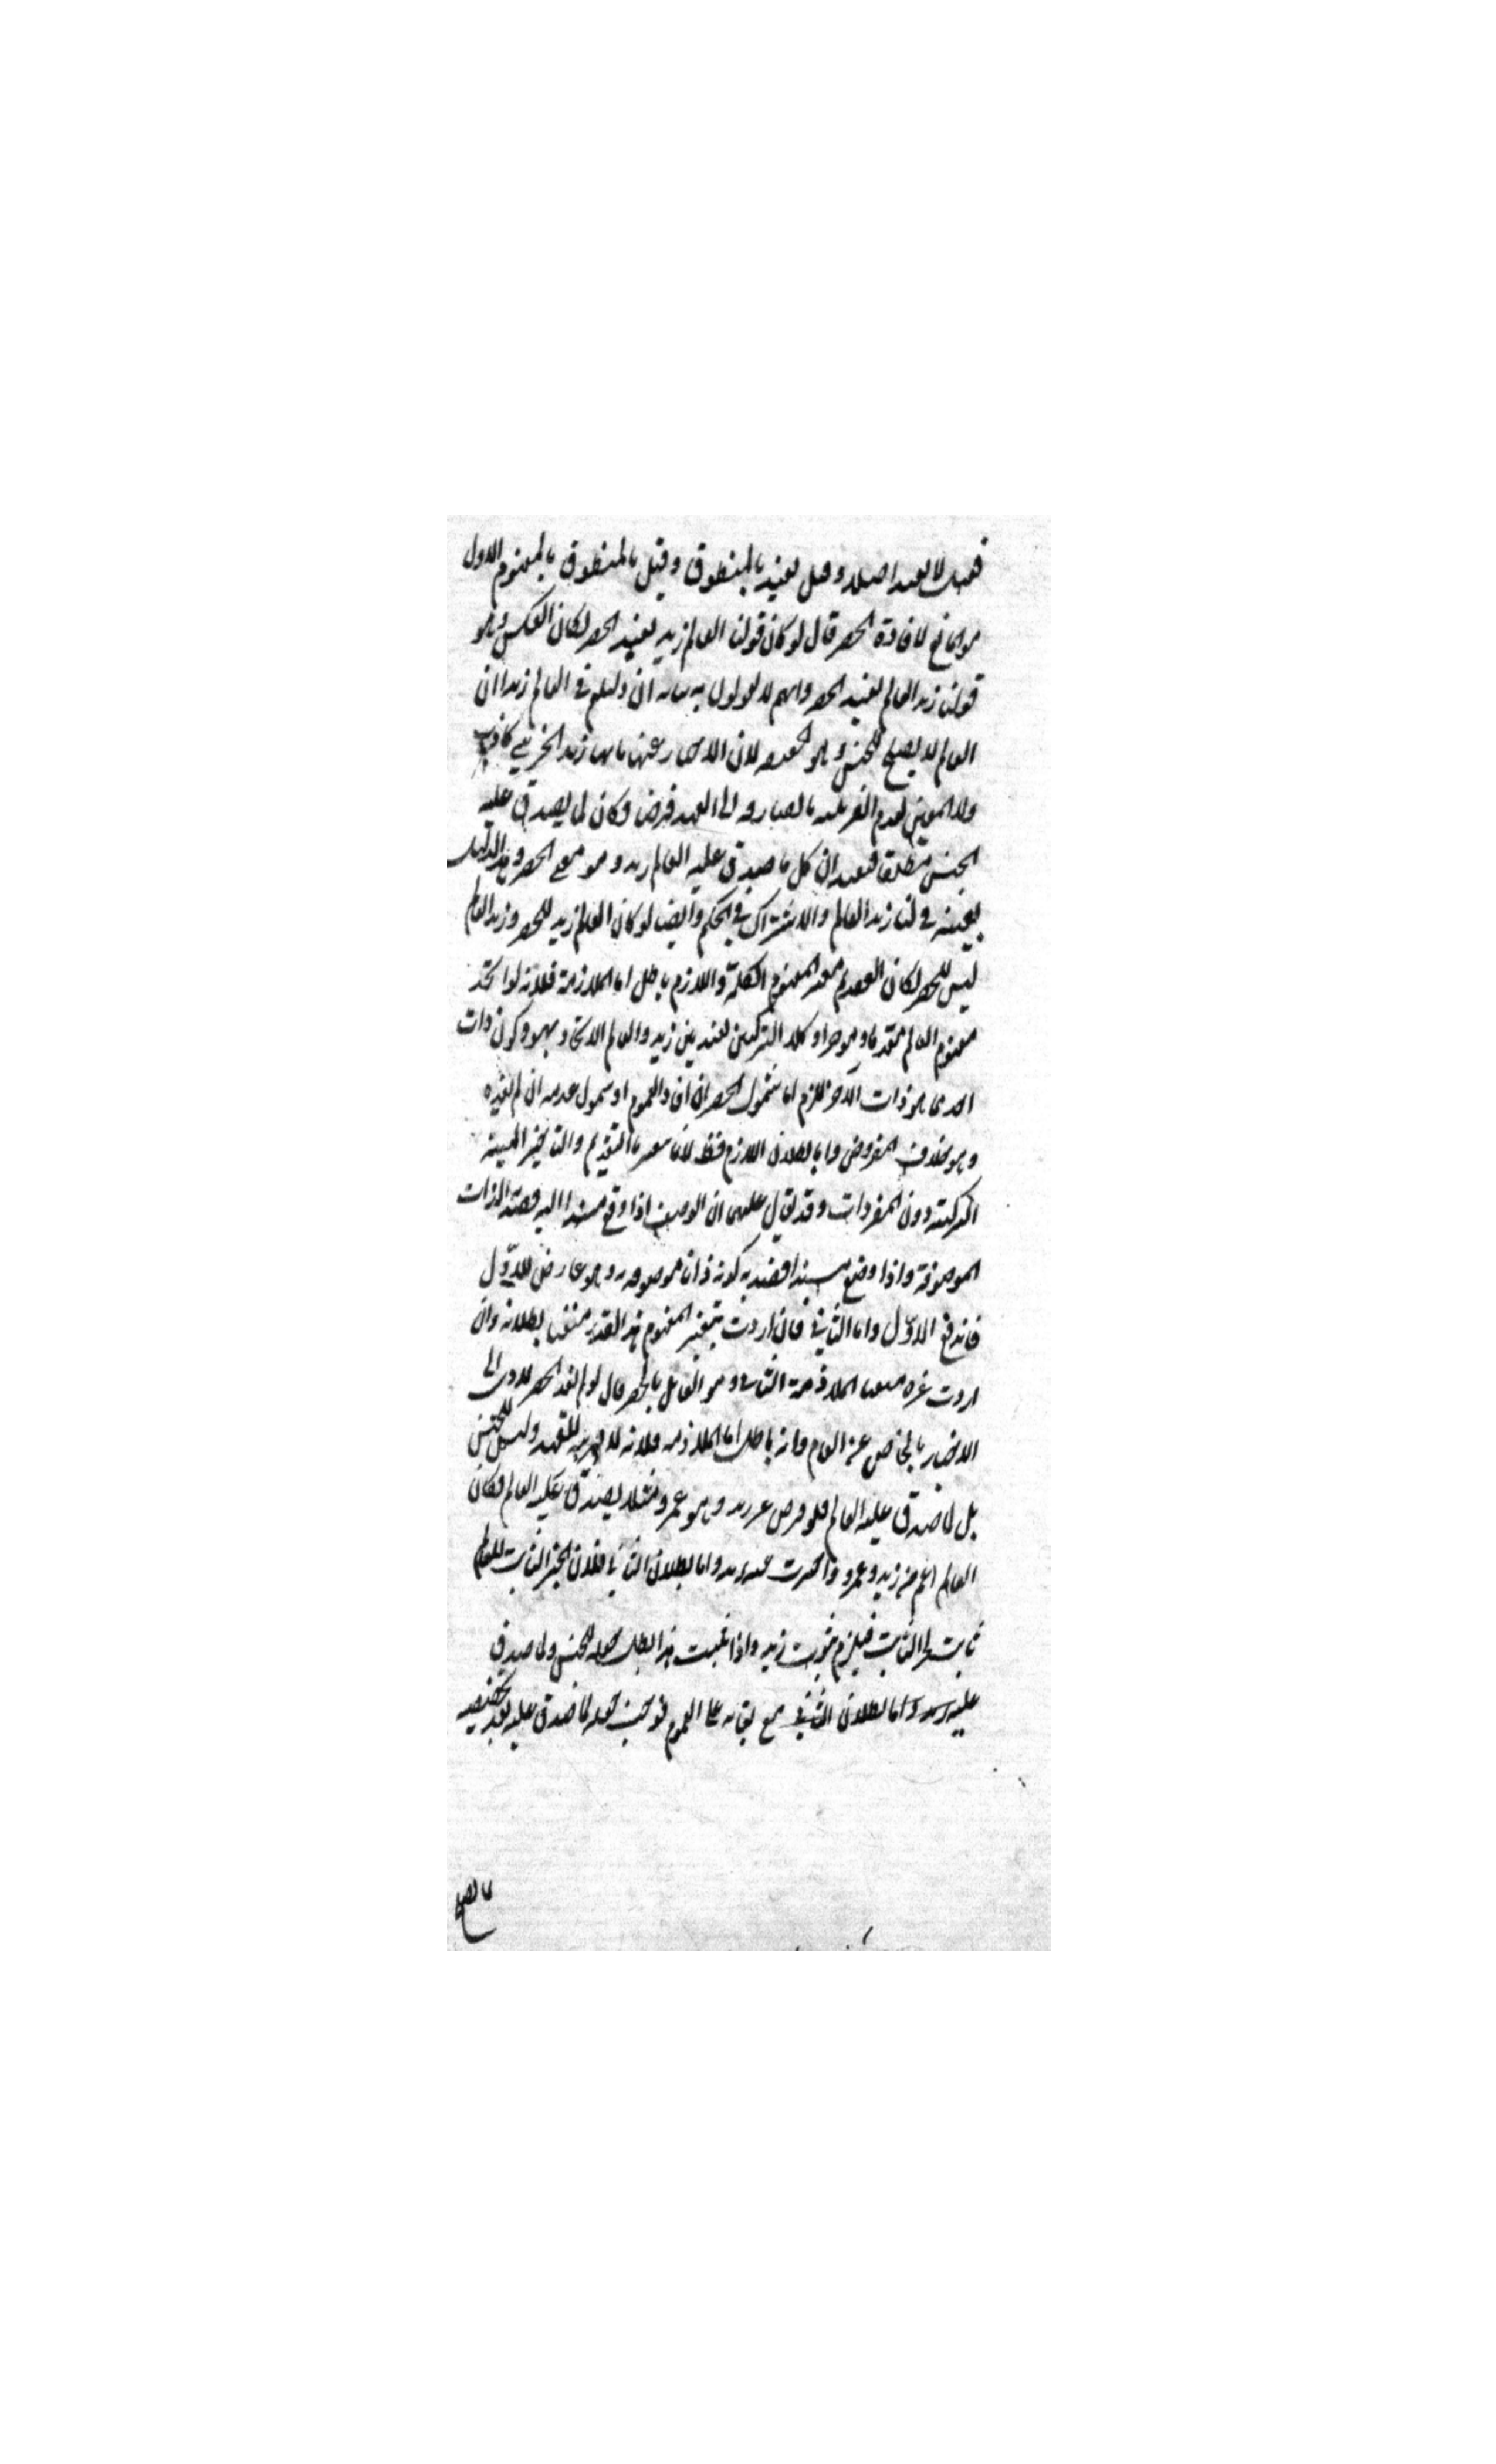 فقيل لا يفيد اصلا وقيل يفيد بالمنطوق وقيل بالمنطوق بالمفهوم الاول
هو المانع لافادة الحصر قال لو كان قولنا العالم زيد يفيد الحصر لكان العكس وهو
قولنا زيد العالم يفيد الحصر وانهم لا يقولون به بيانه ان دليلهم في العالم زيد ان
العالم لا يصلح للجنس وهو الحقيقة لان الاخبار عنها بانها زيد الجزئي كاذب
ولا لمعين لعدم القرينة الصارفة الى العهد فرضا وكان لما يصدق عليه
الجنس مطلقا فيفيد ان كل ما صدق عليه العالم زيد وهو معنى الحصر وهذا الدليل
بعينه في لنا زيد العالم والاشتراك في الحكم وايضا لو كان العالم زيد للحصر وزيد العالم
ليس للحصر لكان التقديم مغير المفهوم الكلمة واللازم باطل اما الملازمة فلانه لو اتحد
مفهوم العالم مقدما ومؤخرا وكلا التركيبين يفيد بين زيد والعالم الاتحاد وهو كون ذات
احدهما هو ذات الآخر فلزم اما شمول الحصر ان افاد العموم او شمول عدمه ان لم يفده
وهو خلاف المفروض واما بطلان اللازم فقط لانا نغير بالتقديم والتاخير الهيئة
التركيبية دون المفردات وقد يقال عليهما ان الوصف اذا وقع مسندا اليه قصد الذات
الموصوفة واذا وضع مسندا قصد به كونه ذاتا موصوفه وهو عارض للاول
فاندفع الاول واما الثاني فان اردت بتغير المفهوم هذا القدر منعنا بطلانه وان
اردت غيره منعنا الملازمة الثاني وهو القائل بالحصر قال لو لم يفد الحصر لادى الى
الاخبار بالخاص عن العام وانه باطل اما الملازمه فلانه لا قرينة للعهد وليس للجنس
بل لما صدق عليه العالم فلو فرض غير زيد وهو عمرو مثلا يصدق عليه العالم فكان
العالم اعم من زيد وعمرو واخبرت عنه بزيد واما بطلان الثاني فلان الخبر الثابت للعام
ثابت لجزا الثابت فيلزم ثبوت زيد واذا ثبت هذا بطل جعله للجنس ولما صدق
عليه زيد واما بطلان الثاني مع بقائه على العموم فوجب جعله لما صدق عليه بعد تخصيصه